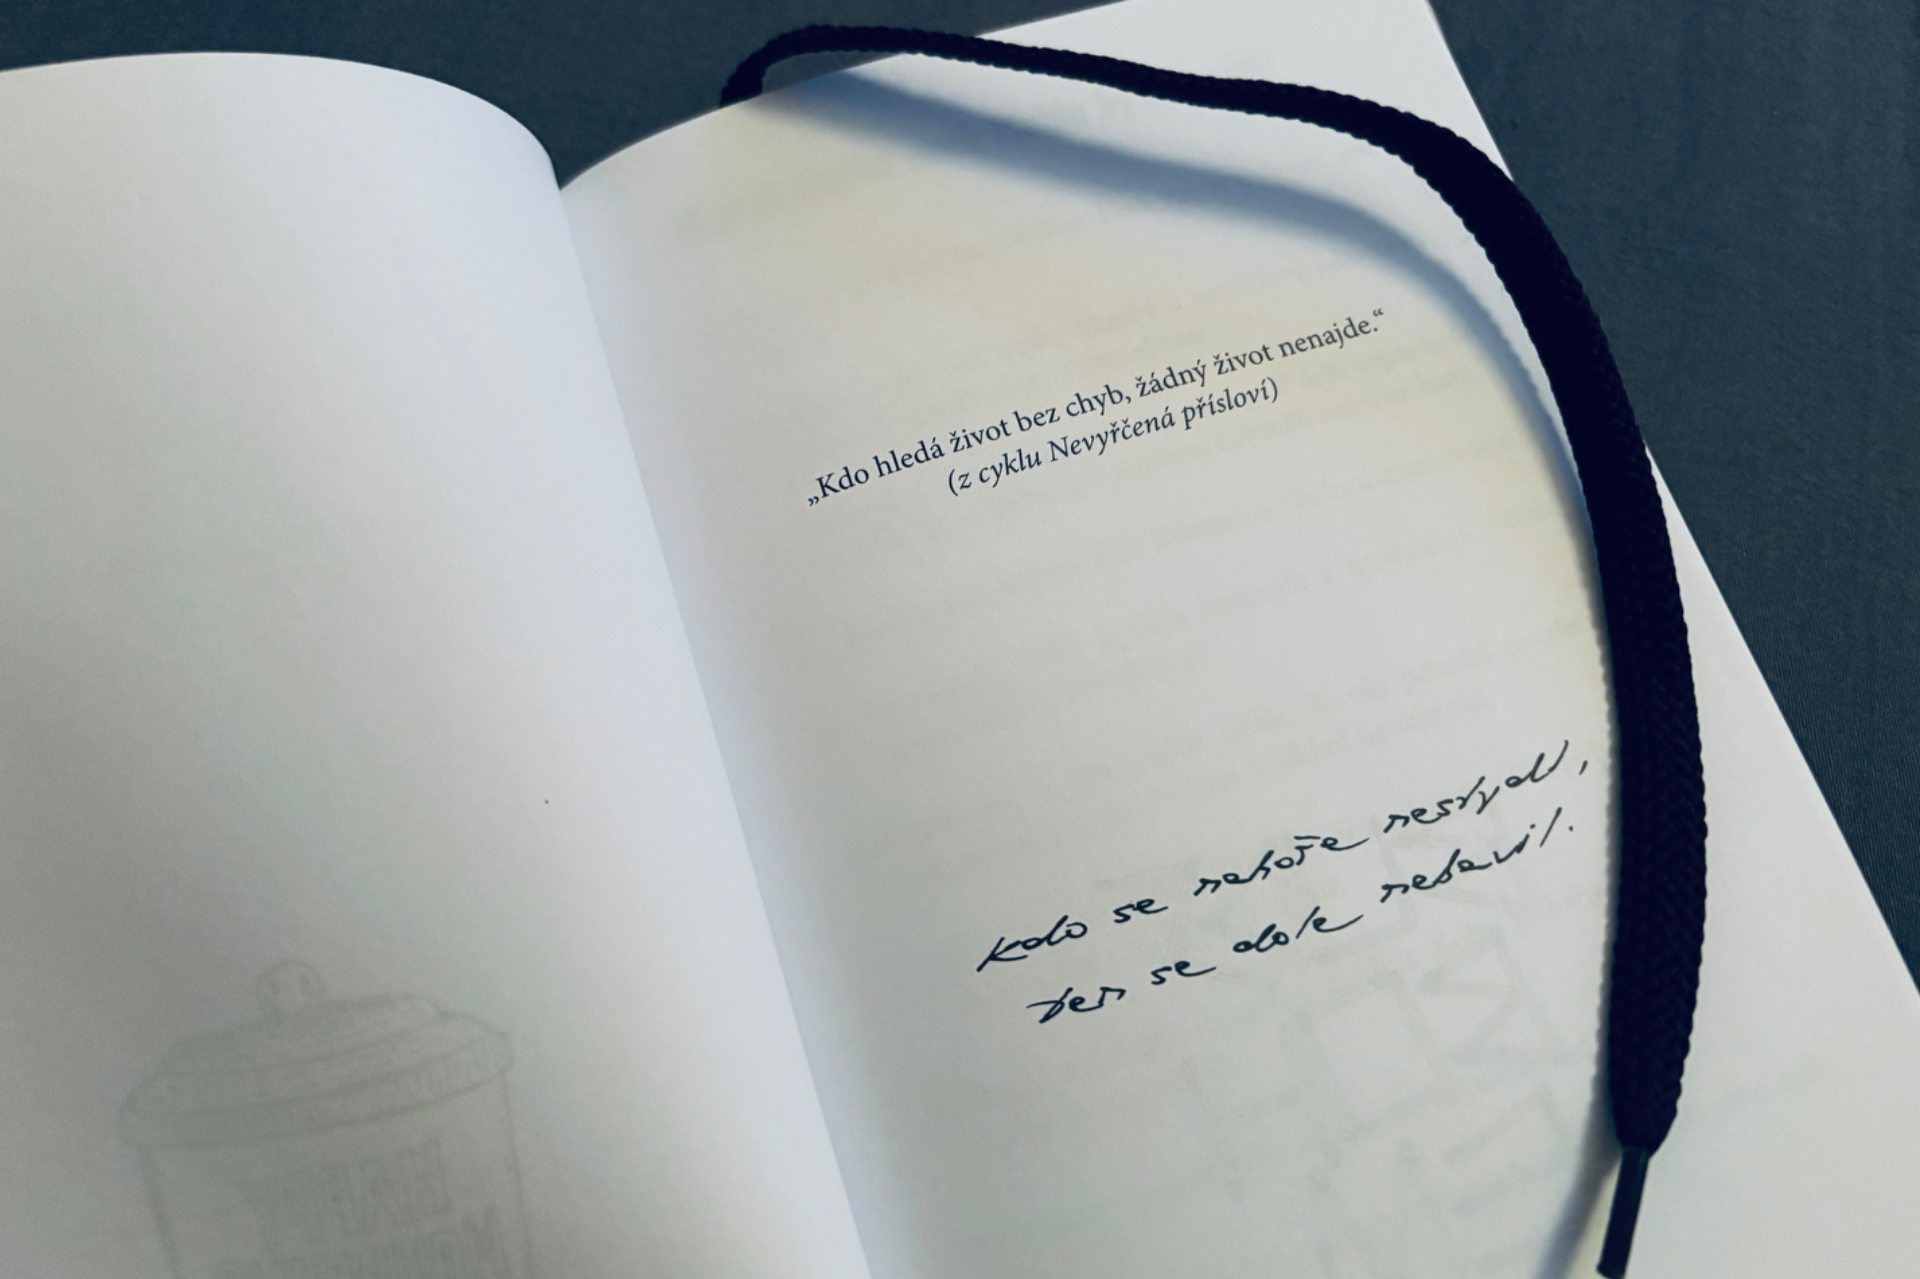 „Kdo hledá život bez chyb, žádný život nenajde.“
(z cyklu Nevyřčená přísloví)
kdo se nahoře nestydí,
ten se dole nebavil.